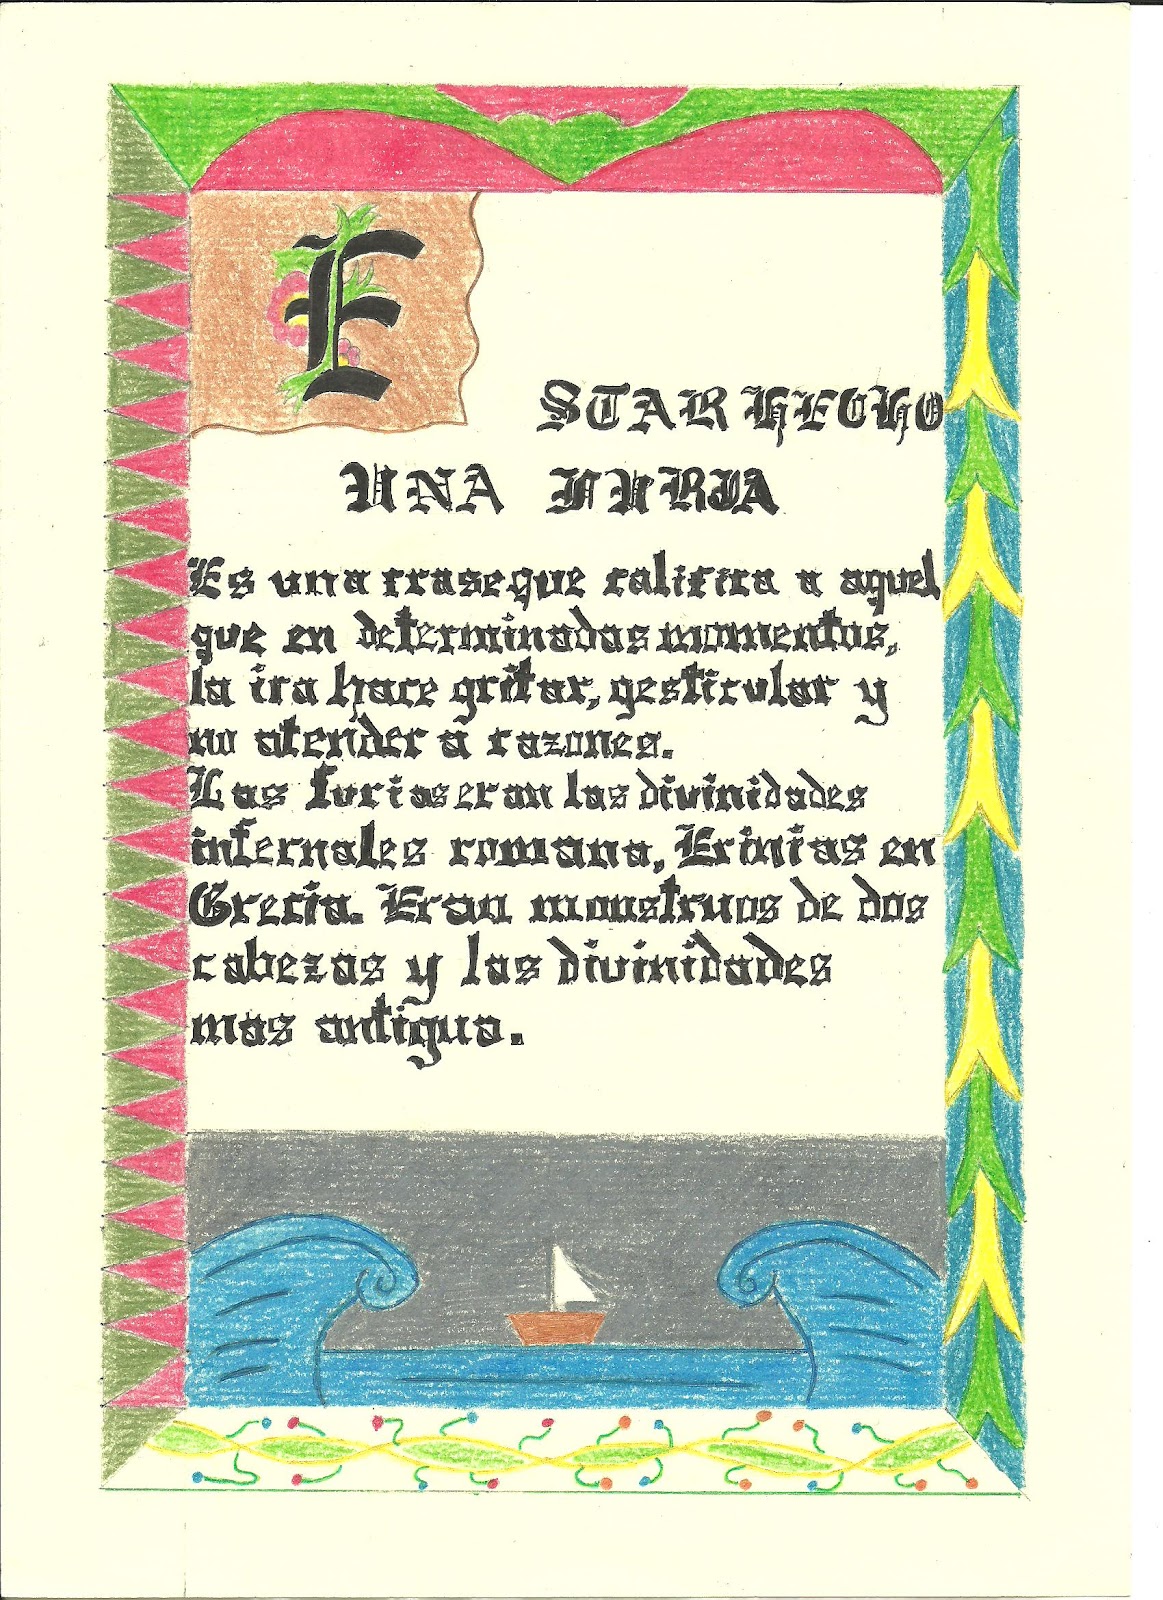 ESTAR HECHO
UNA FURIA
Es una frase que califica a aquel
que en determinadas momentos,
la ira hace gritar, gesticular y
no atender a razones.
Las furias eran las divinidades
infernales romana, Erinias en
Grecia. Eran monstruos de dos
cabezas y las divinidades
mas antigua.